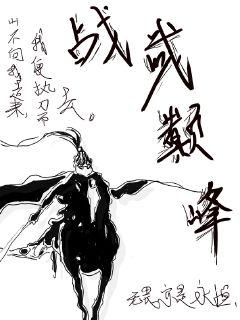 战武巅峰
山不向我走来，
我便执刀而
去。
无畏亦是永恒